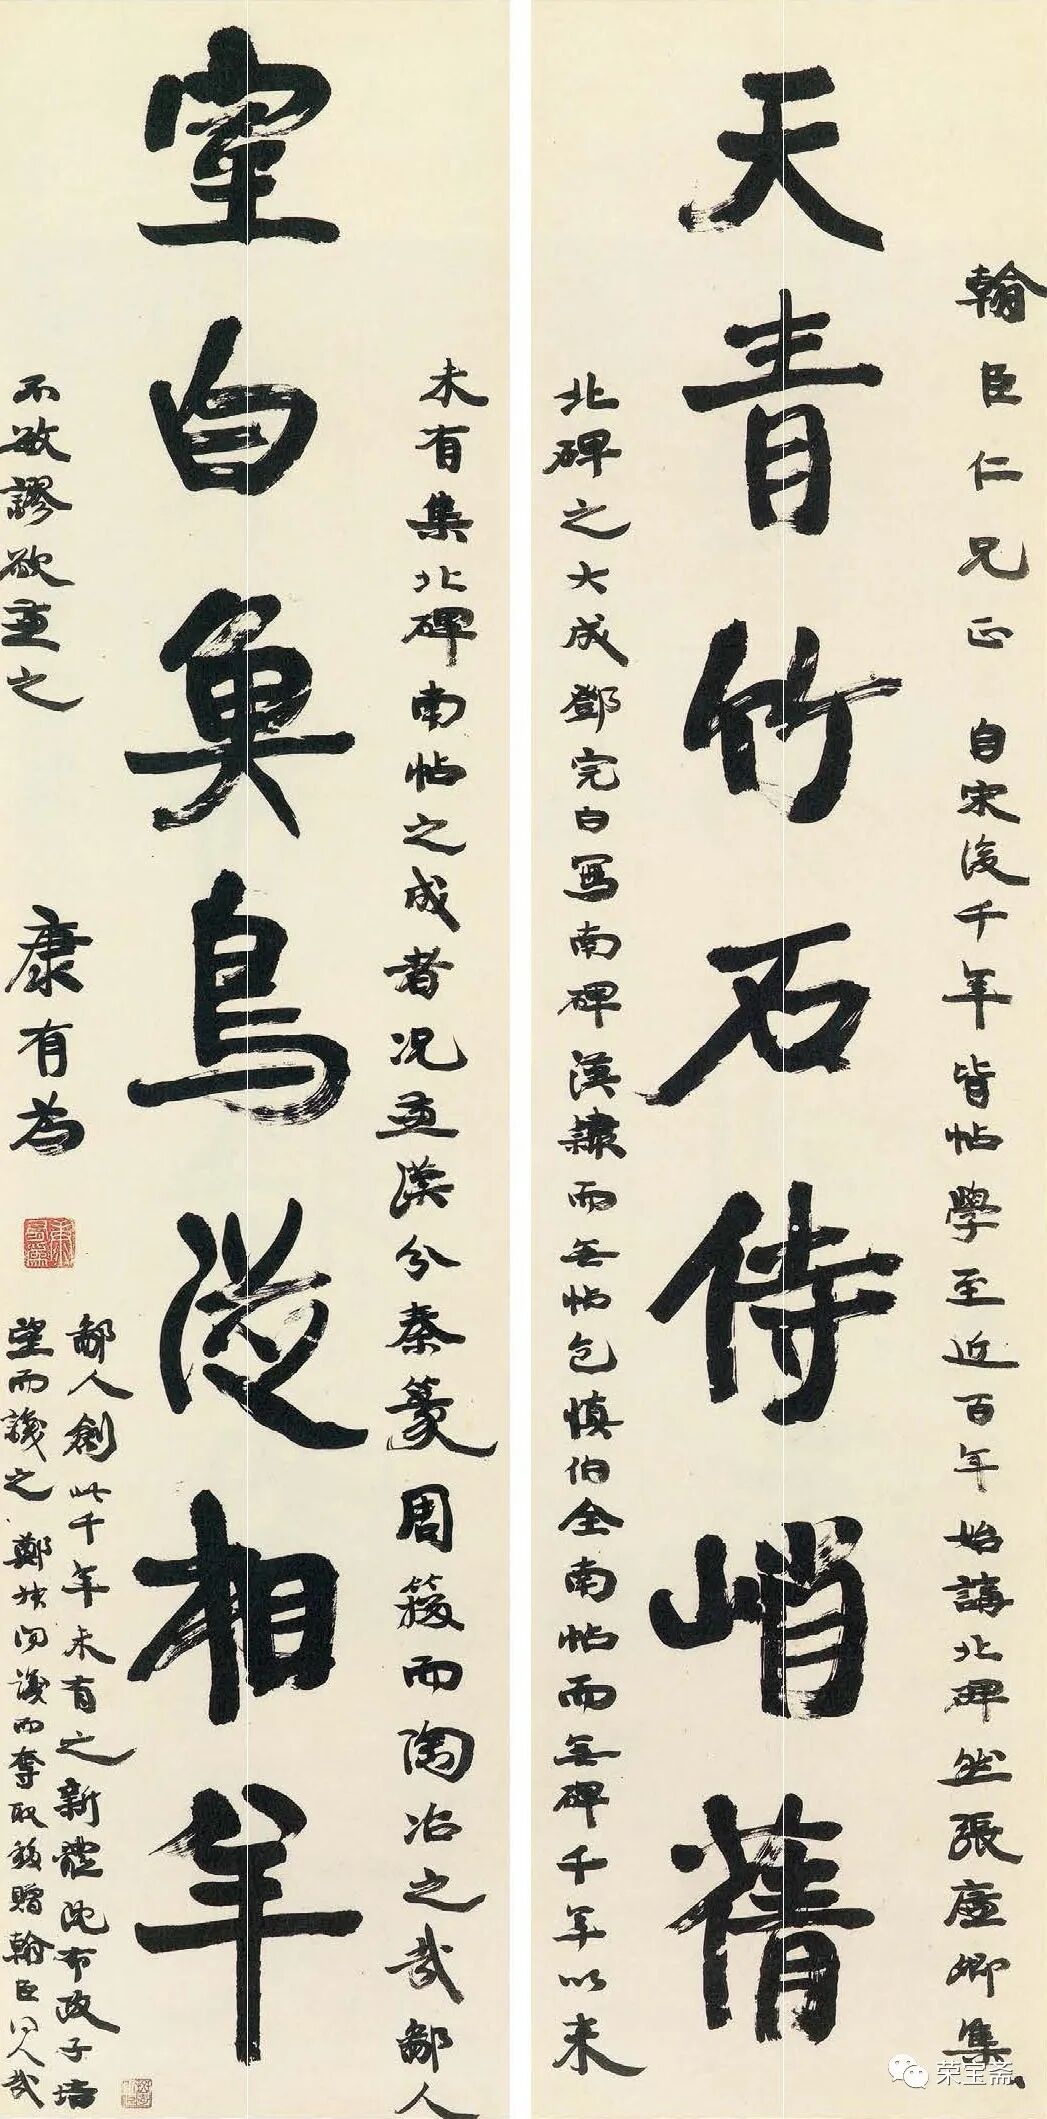 翰臣仁兄正 自宋後千年皆帖學至近百年始講北碑然張廉卿集
天青竹石侍峭蒨
北碑之大成鄧完白寫南碑漢隸而無帖包慎伯全南帖而無碑千年以來
未有集北碑南帖之成者況兼漢分秦篆周籀而陶冶之哉鄙人
室白魚鳥從相羊
不敏謬欲兼之
康有為
鄙人創此千年未有之新體沈布政子培
望而識之鄭叔問識而奪取移贈翰臣人哉
荣宝斋